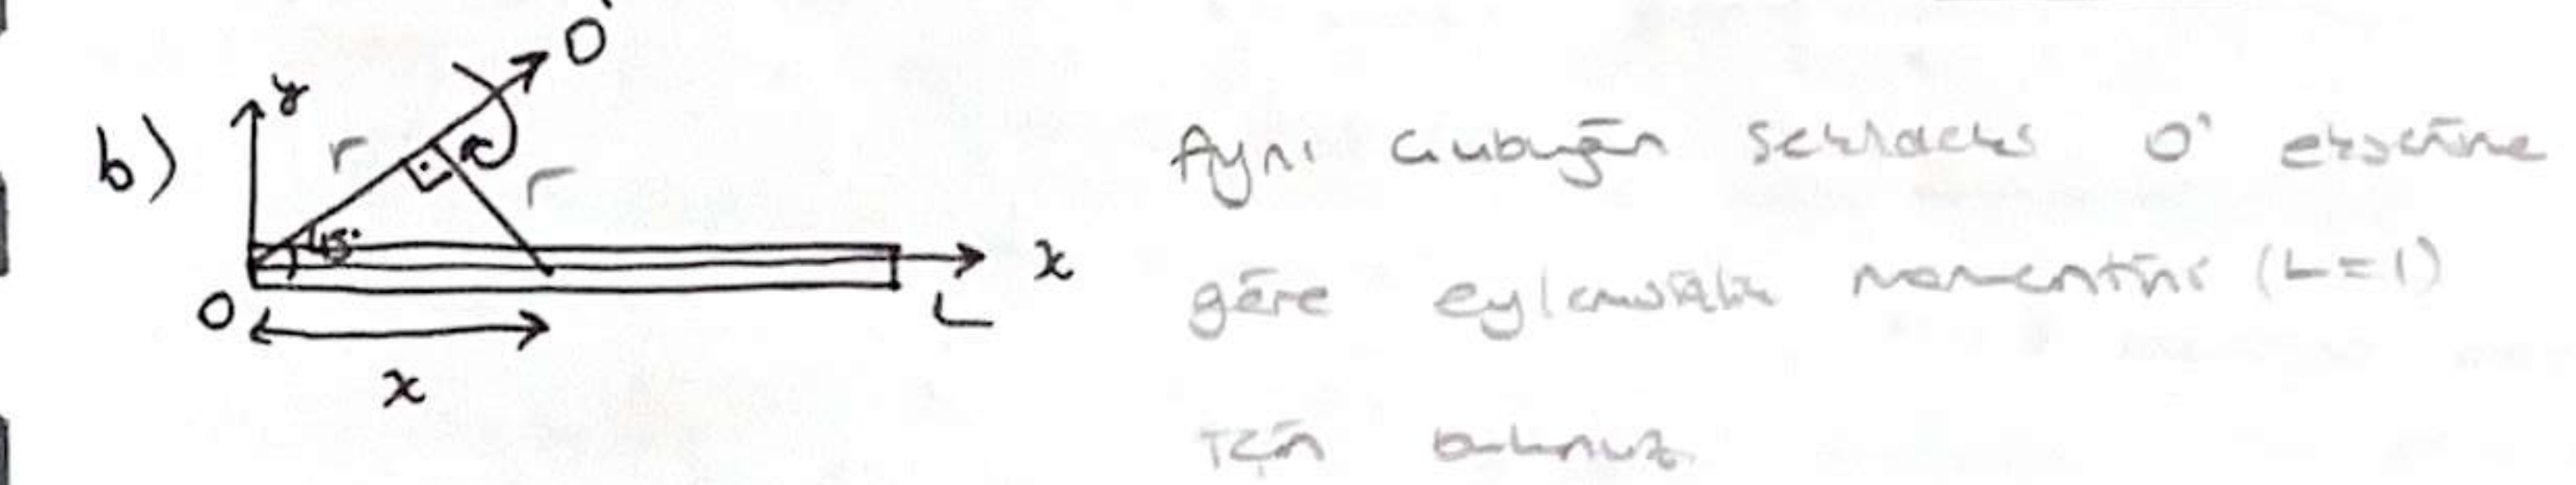 b)
y
O'
r
r
45°
x
O
L
x
Aynı çubuğun şekildeki O' eksenine
göre eylemsizlik momentini (L=1)
için bulunuz.